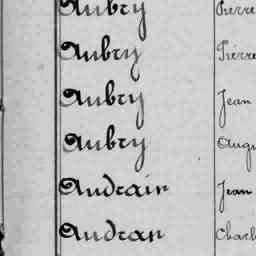 Aubry Pierre
Aubry Pierre
Aubry Jean
Aubry Augu
Audrain Jean
Audran Charl